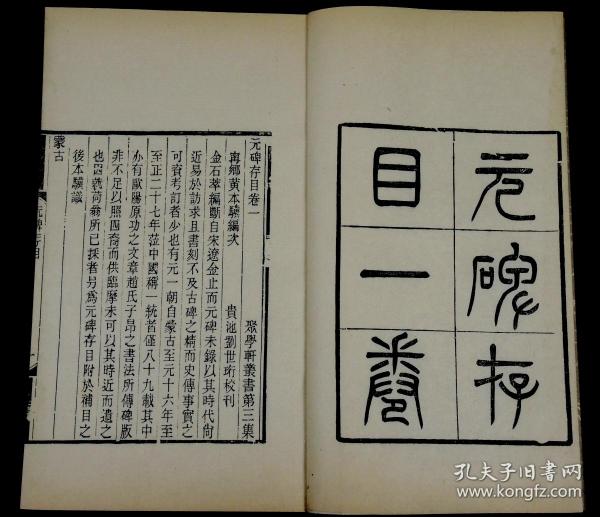 元碑存
目一卷
元碑存目卷一
聚學軒叢書第三集
甯鄉黃本驥編次
貴池劉世珩校刊
金石萃編斷自宋遼金止而元碑未錄以其時代尚
近易於訪求且書刻不及古碑之精而史傳事實之
可資考訂者少也有元一朝自蒙古至元十六年至
至正二十七年蒞中國稱一統者僅八十九載其中
亦有歐陽原功之文章趙氏子昂之書法所傳碑版
非不足以照四裔而供臨摩未可以其時近而遺之
也因就荷翁所已採者另為元碑存目附於補目之
後本驥識
蒙古
元碑存目
孔夫子旧书网
www.kongfz.com